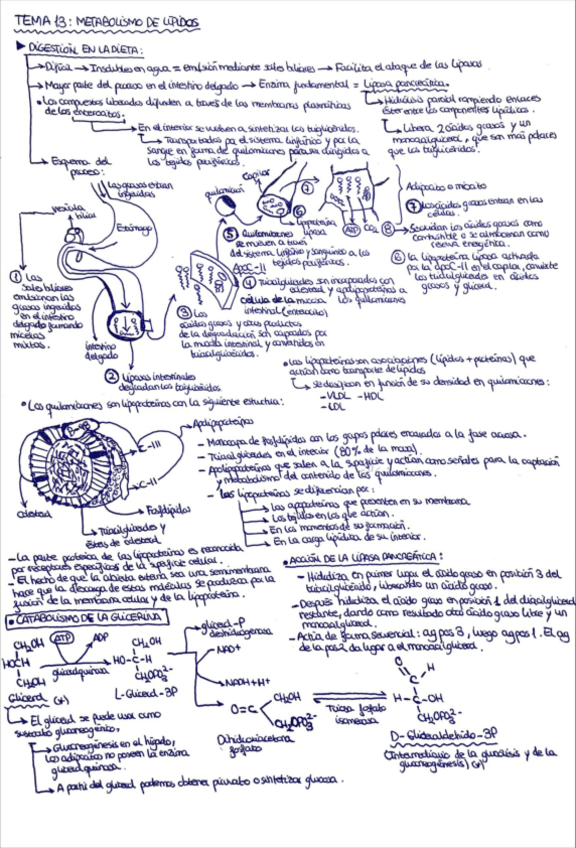 TEMA 13: METABOLISMO DE LÍPIDOS
DIGESTIÓN EN LA DIETA:
Difícil → Insolubles en agua = emulsión mediante sales biliares → Facilita el ataque de las lipasas
Mayor parte del proceso en el intestino delgado → Enzima fundamental = Lipasa pancreática.
Hidrólisis parcial rompiendo enlaces
éster entre los componentes lipídicos.
Libera 2 ácidos grasos y un
monoacilglicerol, que son más polares
que los triglicéridos.
• Los compuestos liberados difunden a través de las membranas plasmáticas
de los enterocitos.
En el interior se vuelven a sintetizar los triglicéridos.
Transportados por el sistema linfático y por la
sangre en forma de quilomicrones para ser dirigidos a
los tejidos periféricos.
Esquema del
proceso:
Las grasas entran
ingeridas
vesícula
biliar
Estómago
① Las
sales biliares
emulsionan las
grasas ingeridas
en el intestino
delgado formando
micelas
mixtas.
intestino
delgado
② Lipasas intestinales
degradan los triglicéridos
③ Los
ácidos grasos y otros productos
de la degradación son captados por
la mucosa intestinal y convertidos en
triacilglicéridos.
④ Triacilglicéridos son incorporados con
colesterol y apolipoproteínas a
los quilomicrones
célula de la mucosa
intestinal (enterocito)
ApoC-II
⑤ Quilomicrones
se mueven a través
del sistema linfático y sanguíneo a los
tejidos periféricos.
quilomicrón
Capilar
lipoproteína
lipasa
⑥
⑦
ATP CO₂ ⑧
Adipocito o miocito
⑦ Los ácidos grasos entran en las
células.
Se oxidan los ácidos grasos como
combustible o se almacenan como
reserva energética.
⑥ La lipoproteína lipasa activada
por la ApoC-II en el capilar, convierte
los triacilglicéridos en ácidos
grasos y glicerol.
• Las lipoproteínas son asociaciones (lípidos + proteínas) que
actúan como transporte de lípidos
Se clasifican en función de su densidad en quilomicrones:
- VLDL - HDL
- LDL
• Los quilomicrones son lipoproteínas con la siguiente estructura:
B-48
C-III
C-II
Apolipoproteínas
Fosfolípidos
Triacilglicéridos y
ésteres de colesterol
colesterol
- Monocapa de fosfolípidos con los grupos polares encarados a la fase acuosa.
- Triacilglicéridos en el interior (80% de la masa).
- Apolipoproteínas que salen a la superficie y actúan como señales para la captación
y metabolismo del contenido de los quilomicrones.
- Las lipoproteínas se diferencian por:
Las apoproteínas que presentan en su membrana
Los tejidos en los que actúan.
En los momentos de su formación.
En la carga lipídica de su interior.
- La parte proteica de las lipoproteínas es reconocida
por receptores específicos de la superficie celular.
- El hecho de que la cubierta externa sea una semimembrana
hace que la descarga de estas moléculas se produzca por la
fusión de la membrana celular y de la lipoproteína.
• ACCIÓN DE LA LIPASA PANCREÁTICA:
- Hidroliza en primer lugar el ácido graso en posición 3 del
triacilglicérido, liberando un ácido graso.
- Después hidroliza el ácido graso en posición 1 del diacilglicerol
restante, dando como resultado otro ácido graso libre y un
monoacilglicerol.
- Actúa de forma secuencial: ag pos 3, luego ag pos 1. El ag
de la pos 2 da lugar a el monoacilglicerol.
• CATABOLISMO DE LA GLICERINA
CH₂OH
HOCH
CH₂OH
Glicerol (*)
ATP
ADP
glicerolquinasa
CH₂OH
HO-C-H
CH₂OPO₃²⁻
L-Glicerol-3P
glicerol-P
deshidrogenasa
NAD+
NADH+H⁺
CH₂OH
O=C
CH₂OPO₃²⁻
Dihidroxiacetona
fosfato
Triosa fosfato
isomerasa
O
C
H
H-C-OH
CH₂OPO₃²⁻
D-Gliceraldehído-3P
(Intermediario de la glucólisis y de la
gluconeogénesis) (*)
El glicerol se puede usar como
sustrato gluconeogénico,
Gluconeogénesis en el hígado,
los adipocitos no poseen la enzima
glicerolquinasa.
A partir del glicerol podemos obtener piruvato o sintetizar glucosa.